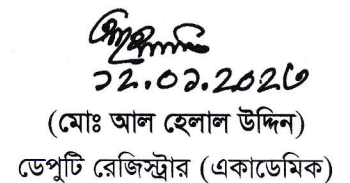 ১২.০১.২০২৩
(মোঃ আল হেলাল উদ্দিন)
ডেপুটি রেজিস্ট্রার (একাডেমিক)